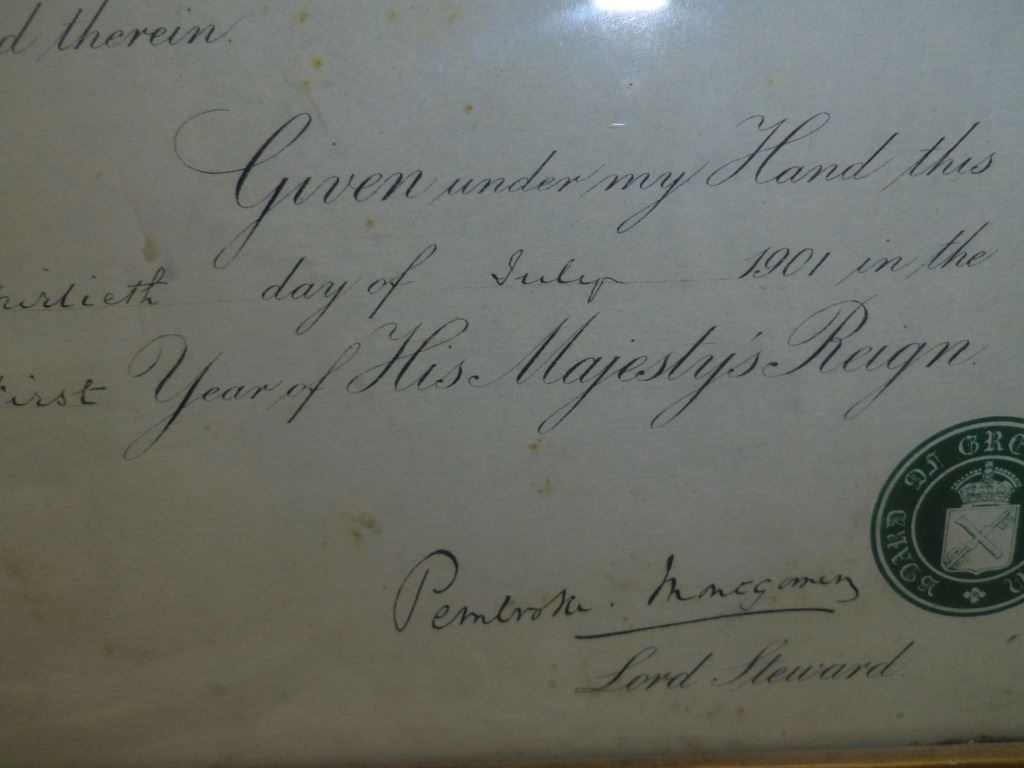 d therein.
Given under my Hand this
hirtieth day of July 1901 in the
First Year of His Majesty's Reign.
BOARD OF GRE
Pembroke. Montgomery
Lord Steward